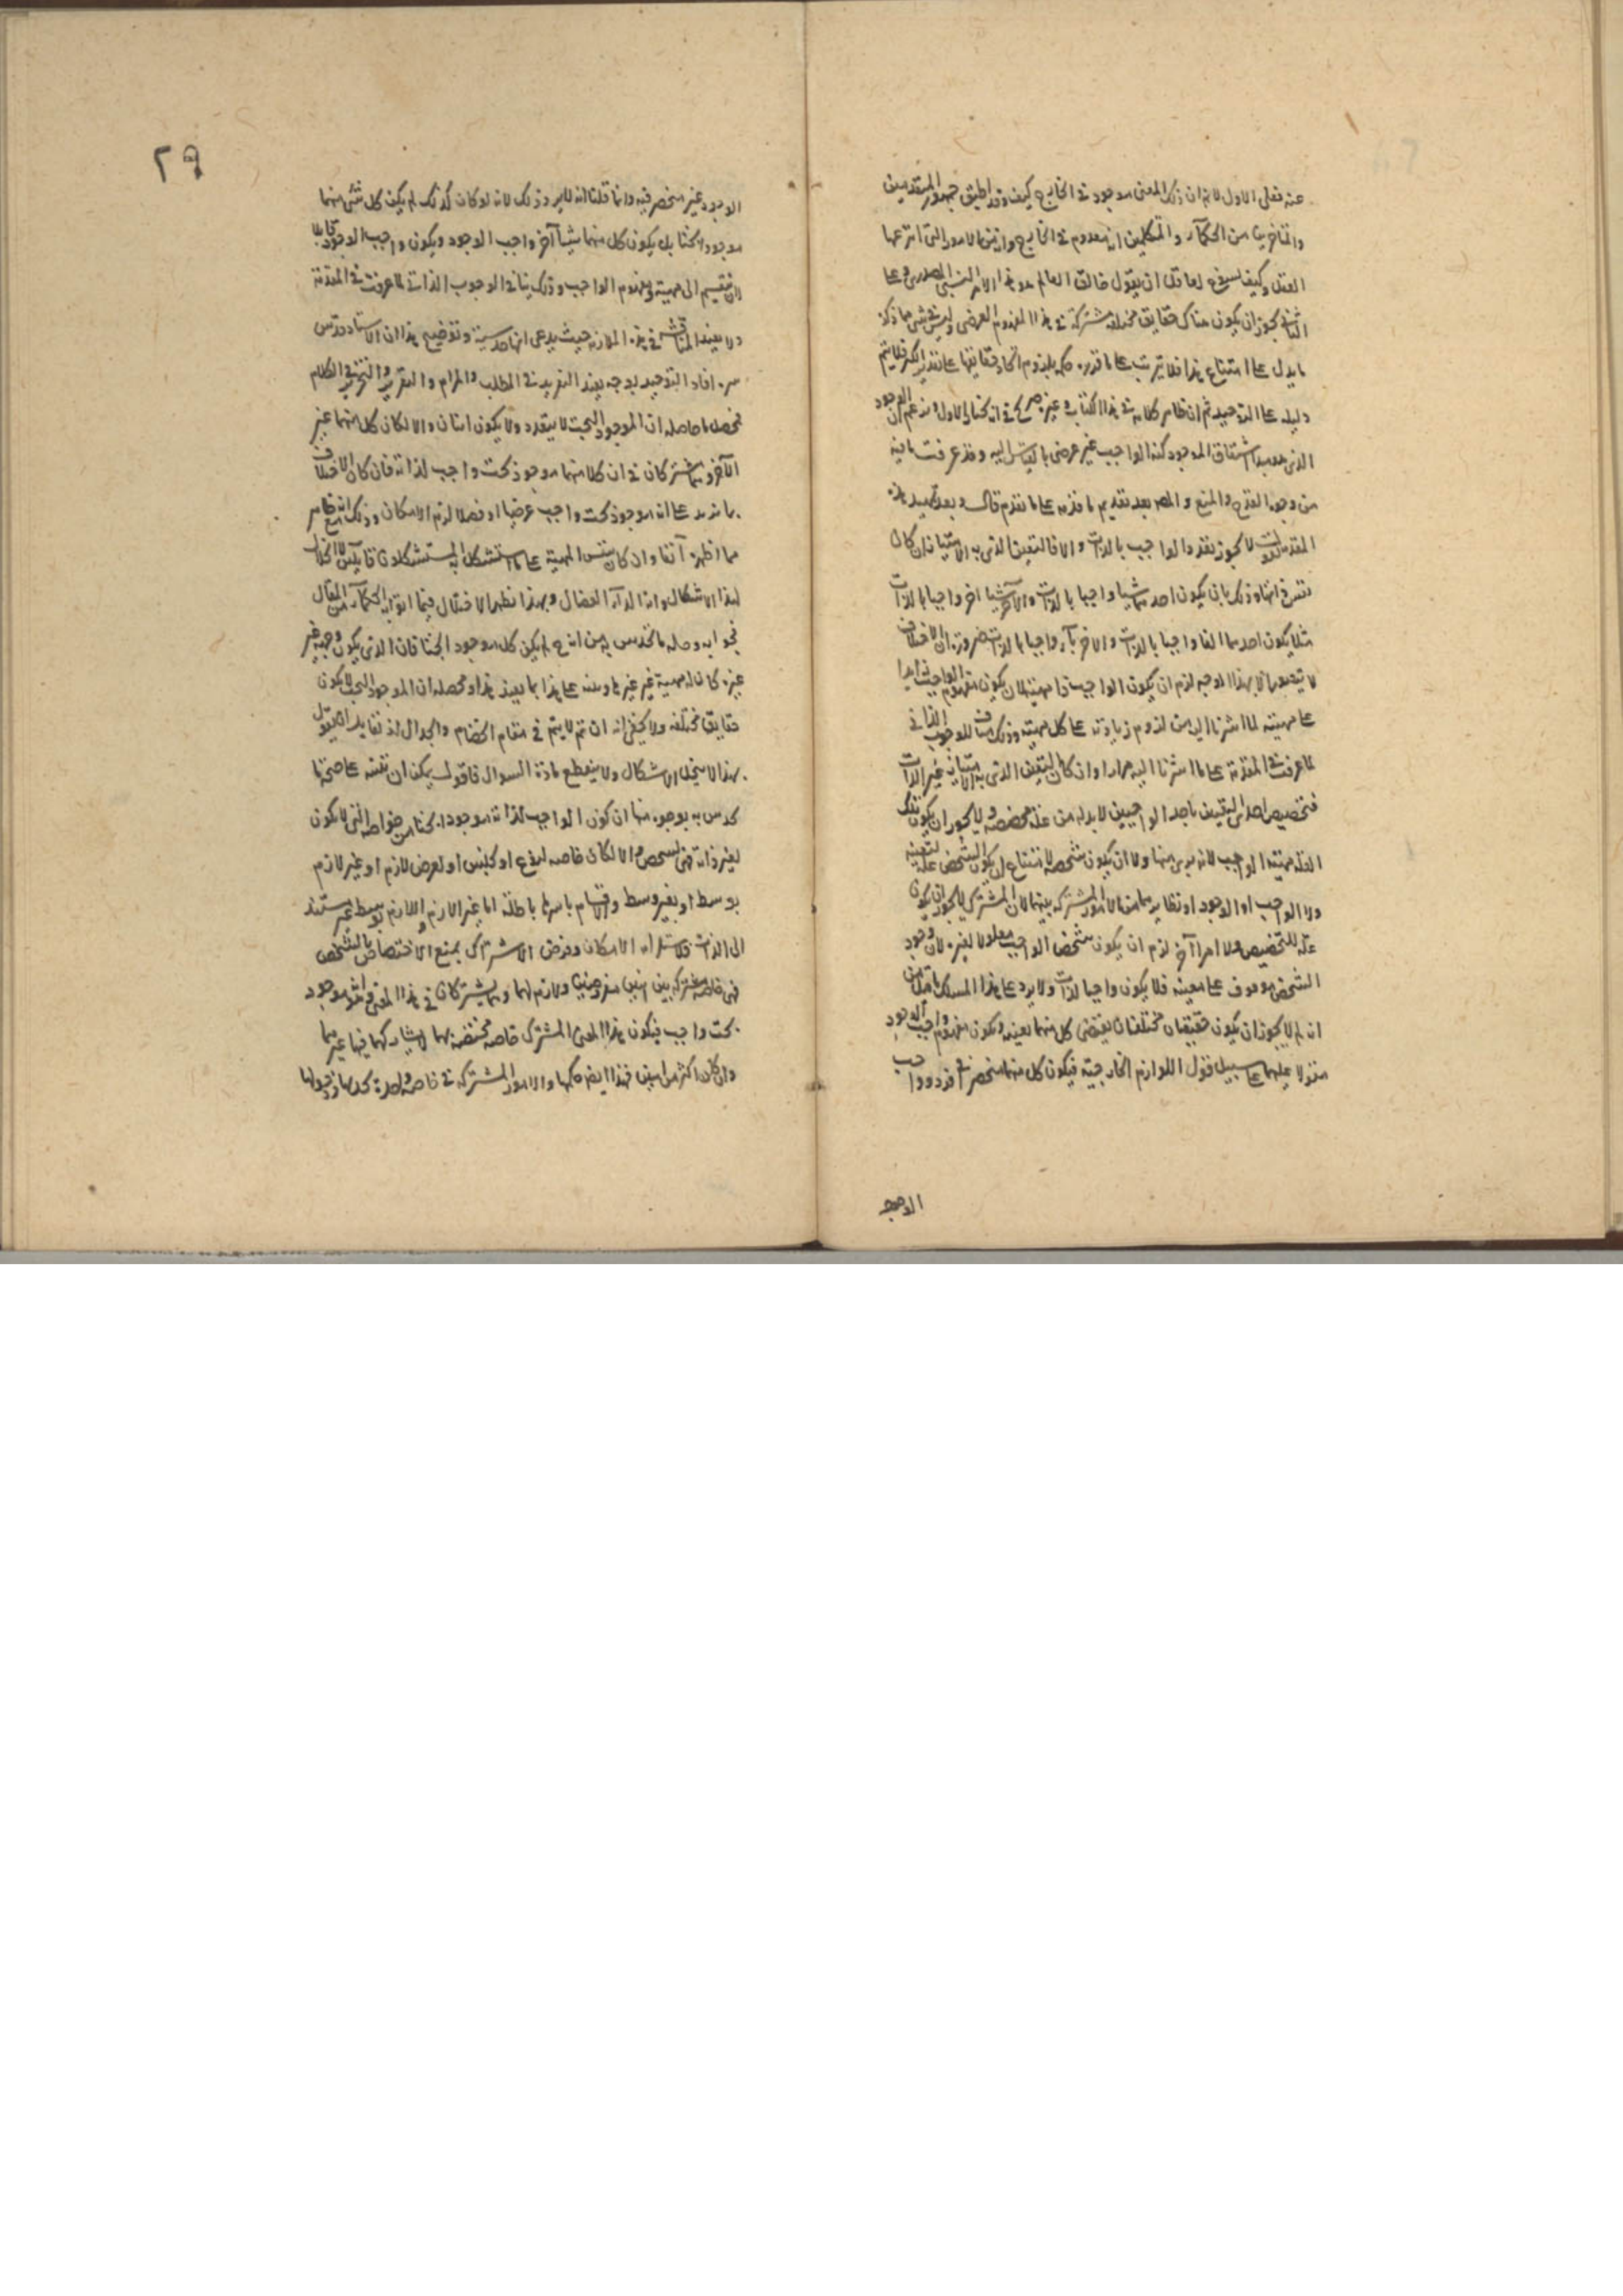 عنه فعلى الاول لا نم ان ذلك المعنى موجود في الخارج كيف وقد اطبق جمهور المتقدمين
والمتاخرين من الحكماء والمتكلمين انه معدوم في الخارج وانه من الامور التي انتزعها
العقل وكيف يسوغ لعاقل ان يقول خالق العالم هو هذا الامر النسبي المصدري وعلى
الثاني يجوز ان يكون هناك حقايق مختلفة مشتركة في هذا المفهوم العرضي وليس في شيء مما ذكره
ما يدل على امتناع هذا فلا يترتب على ما قدره حكمه بلزوم اتحاد حقايقها على تقدير الكثرة فلا يتم
دليله على التوحيد ثم ان ظاهر كلامه في هذا الكتاب وغيره صريح في انه اختار الاول وزعم ان الوجود
الذي هو مبدا اشتقاق الموجود كنه الواجب غير عرضي بالقياس اليه وقد عرفت ما فيه
من وجوه القدح والمنع والمصـ بعد تقديم ما قدمه على ما تقدم قال وبعد تمهيد هذه
المقدمة نقول لا يجوز تعدد الواجب بالذات والا فالتعين الذي به الامتياز ان كان
نفس ذاتهما وذلك بان يكون احدهما شيئا واجبا بالذات والآخر شيئا اخر واجبا بالذات
مثلا يكون احدهما الفا واجبا بالذات والاخر باء واجبا بالذات ضرورة ان الاختلاف
لا يتصور الا بهذا الوجه لزم ان يكون الواجب ذا مهية لان يكون مفهوم الواجب زايدا
على مهيته لما اشرنا اليه من لزوم زيادته على كل مهية وذلك مناف للوجوب الذاتي
لما عرفت في المقدمة على ما اشرنا اليه مرارا وان كان التعين الذي به الامتياز غير الذات
فتخصيص احد التعينين باحد الواجبين لا بد له من علة مخصصة ولا يجوز ان يكون تلك
العلة مهية الواجب لانه بري منها ولا ان يكون شخصه لامتناع ان يكون الشخص علة لتعينه
ولا الواجب او الوجود او نظايرهما من الامور المشتركة بينهما لان المشترك لا يجوز ان يكون
علة للتخصيص ولا امرا آخر لزم ان يكون تشخص الواجب معلولا لغيره لان وجود
الشخص موقوف على تعينه فلا يكون واجبا لذاته ولا يرد على هذا المسلك ما قيل من
انه لم لا يجوز ان يكون حقيقتان مختلفتان يقتضي كل منهما تعينه ويكون مفهوم واجب الوجود
مقولا عليهما على سبيل قول اللوازم الخارجية فيكون كل منهما منحصر في فرد وواجب
الوجود
٢٩
الوجود غير منحصر فيه وانما قلنا انه لا يرد ذلك لانه لو كان كذلك لم يكن كل شيء منهما
موجودا بحتا بل يكون كل منهما شيئا آخر واجب الوجود ويكون واجب الوجود قابلا
لان ينقسم الى مهية ومفهوم الواجب وذلك ينافي الوجوب الذاتي لما عرفت في المقدمة
ولا يفيد المناقشة في هذه الملازمة حيث يدعى انها حدسية وتوضيح هذا ان الاستاد قدس
سره افاد التوحيد بوجه يفيد التفريد في المطلب والمرام والتقرير والتحرير في الكلام
محصل ما حاصله ان الموجود البحت لا يتعدد ولا يكون اثنان والا لكان كل منهما غير
الآخر ويتشاركان في ان كلا منهما موجود بحت واجب لذاته فان كان الاختلاف
بما زيد على انه موجود بحت واجب عرضيا او فصلا لزم الامكان وذلك انه ظاهر
مما اظهره آنفا وان كان بنفس المهية على ما استشكل به المستشكلون قايلين لا انحلال
لهذا الاشكال وانه الداء العضال وبهذا نظير الاختلال فيما اتوا به الحكماء من المقال
فجوابه وحله ما تحدس به من انه ح لم يكن كل موجود ابحتا فان الذي يكون وجهه غير
غيره كان له مهية غير غيره على هذا بما يفيد هذا ومحصله ان الموجود البحت لا يكون
حقايق مختلفة ولا يخفى انه ان تم لا يتم في مقام الخصام والجدال اذ لقايل ان يقول
بهذا لا ينحل الاشكال ولا ينقطع مادة السوال فاقول يمكن ان ننبه على صحة ما
تحدس به بوجوه منها ان كون الواجب لذاته موجودا بحتا من خواصه التي لا يكون
لغير ذاته فهي لشخص والا لكان خاصة لنوع او لجنس او لعرض لازم او غير لازم
بوسط او بغير وسط والاقسام باسرها باطلة اما غير اللازم واللازم بوسط غير مستند
الى الذات فلاستلزام الامكان وفرض الاشتراك يمنع الاختصاص بالشخص
فهي خاصة مشتركة بين اثنين مفروضين ولازم لهما وهما يشتركان في هذا المعنى وهو انه موجود
بحت واجب فيكون هذا المعنى المشترك خاصة مختصة بهما لا يشاركهما فيها غيرهما
وان كان اكثر من اثنين فهذا ايضا حكمها والامور المشتركة في خاصة واحدة